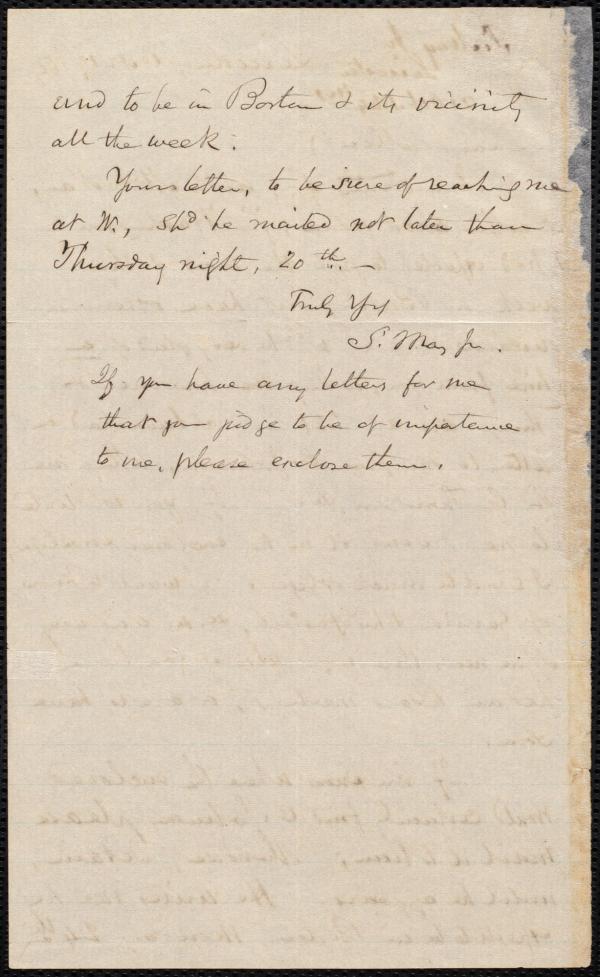 and to be in Boston & its vicinity
all the week.
Yours letter, to be sure of reaching me
at W., shd. be mailed not later than
Thursday night, 20th. —
Truly Yrs
S. May Jr.
If you have any letters for me
that you judge to be of importance
to me, please enclose them.